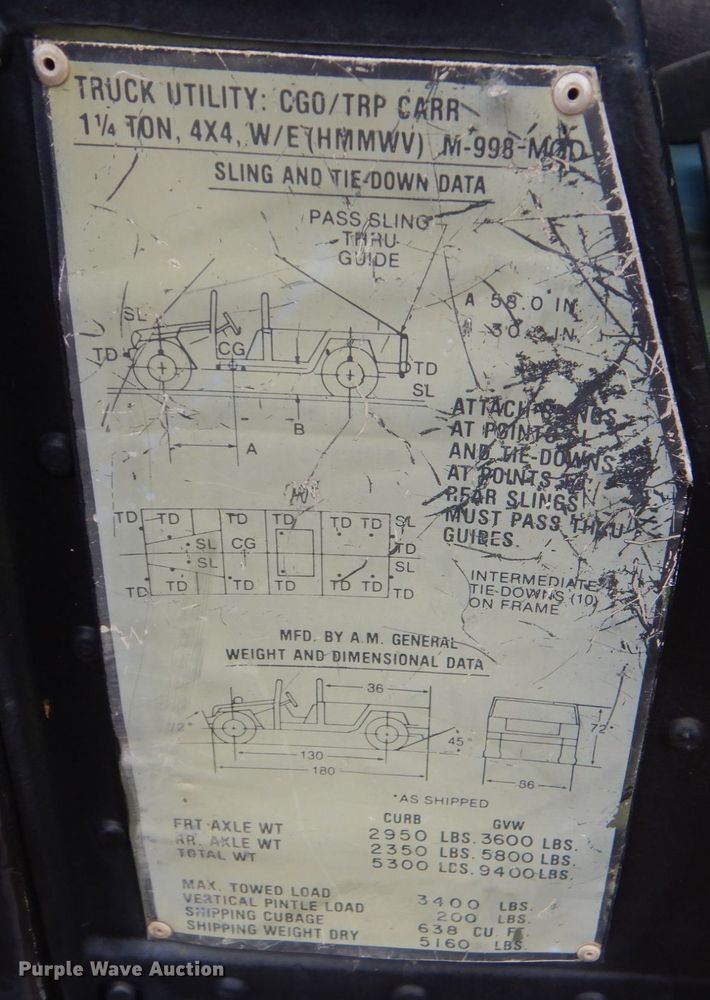 TRUCK UTILITY: CGO/TRP CARR
1 1/4 TON, 4X4, W/E (HMMWV) M-998-MOD
SLING AND TIE-DOWN DATA
PASS SLING
THRU
GUIDE
SL
TD
CG
TD
SL
A
B
A 58.0 IN.
IN.
ATTACH SLINGS
AT POINTS SL
AND TIE-DOWNS
AT POINTS
REAR SLINGS
MUST PASS THRU
GUIDES.
TD TD TD TD TD TD SL
SL CG TD
SL SL
TD TD TD TD TD TD TD
INTERMEDIATE
TIE-DOWNS (10)
ON FRAME
MFD. BY A.M. GENERAL
WEIGHT AND DIMENSIONAL DATA
36
72°
45°
130
180
72*
86
*AS SHIPPED
CURB GVW
FRT AXLE WT 2950 LBS. 3600 LBS.
RR. AXLE WT 2350 LBS. 5800 LBS.
TOTAL WT 5300 LBS. 9400 LBS.
MAX. TOWED LOAD 3400 LBS.
VERTICAL PINTLE LOAD 200 LBS.
SHIPPING CUBAGE 638 CU. FT.
SHIPPING WEIGHT DRY 5160 LBS.
Purple Wave Auction